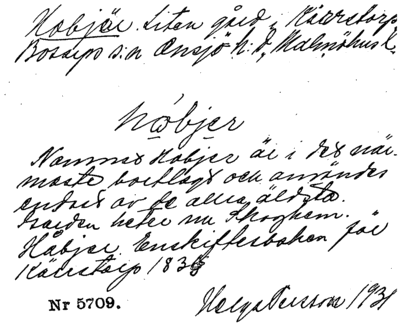 Hobjär. Liten gård i Kärrstorp
Bosarps s:n Onsjö h:d, Malmöhus L.
håbjer
Namnet Hobjer är i det när-
maste bortlagt och användes
endast av de allra äldsta.
Gården heter nu Skoghem.
Håbjer Enskiftesboken för
Kärrstorp 1835
Nr 5709.
Helga Persson 1931